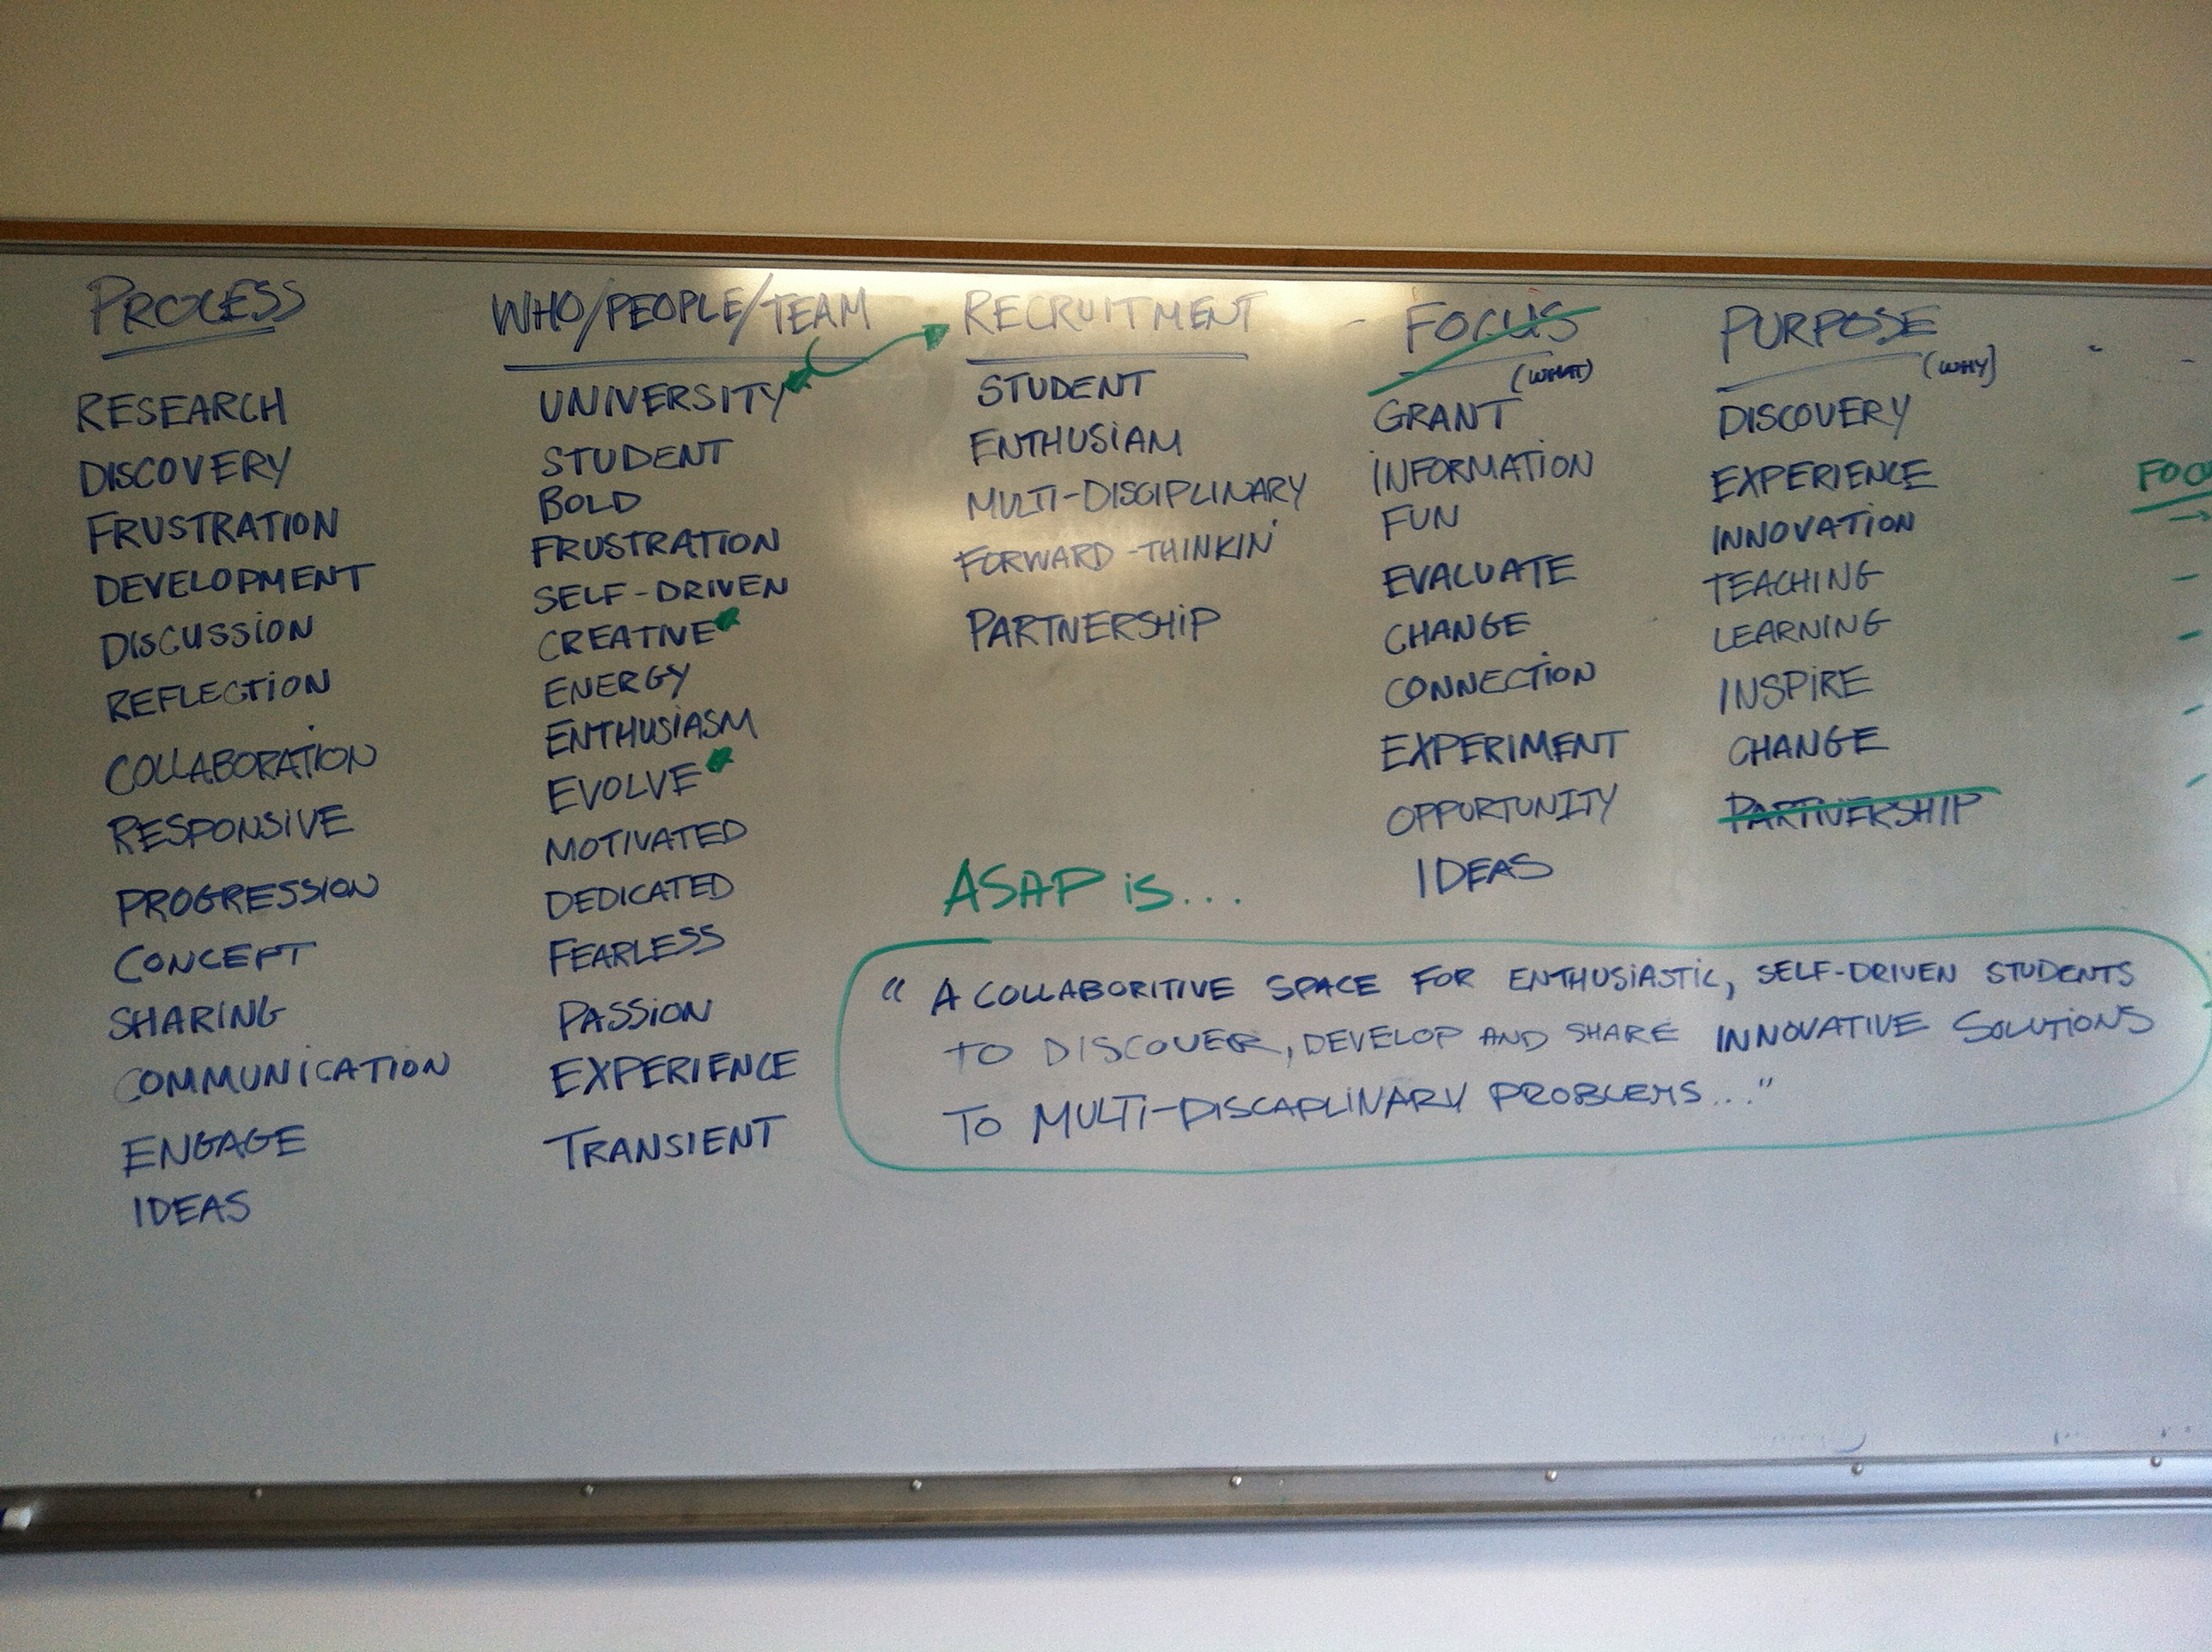 PROCESS
RESEARCH
DISCOVERY
FRUSTRATION
DEVELOPMENT
DISCUSSION
REFLECTION
COLLABORATION
RESPONSIVE
PROGRESSION
CONCEPT
SHARING
COMMUNICATION
ENGAGE
IDEAS
WHO/PEOPLE/TEAM
UNIVERSITY
STUDENT
BOLD
FRUSTRATION
SELF-DRIVEN
CREATIVE
ENERGY
ENTHUSIASM
EVOLVE
MOTIVATED
DEDICATED
FEARLESS
PASSION
EXPERIENCE
TRANSIENT
RECRUITMENT
STUDENT
ENTHUSIAM
MULTI-DISCIPLINARY
FORWARD-THINKIN'
PARTNERSHIP
FOCUS
(WHAT)
GRANT
INFORMATION
FUN
EVALUATE
CHANGE
CONNECTION
EXPERIMENT
OPPORTUNITY
IDEAS
PURPOSE
(WHY)
DISCOVERY
EXPERIENCE
INNOVATION
TEACHING
LEARNING
INSPIRE
CHANGE
PARTNERSHIP
ASAP is...
"A COLLABORITIVE SPACE FOR ENTHUSIASTIC, SELF-DRIVEN STUDENTS
TO DISCOVER, DEVELOP AND SHARE INNOVATIVE SOLUTIONS
TO MULTI-DISCAPLINARY PROBLEMS..."